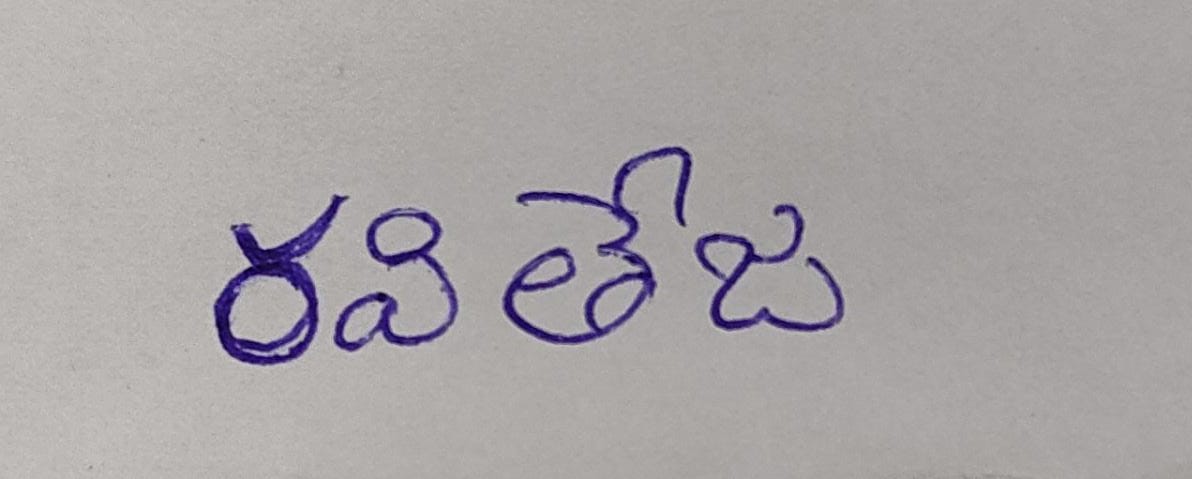 రవితేజ